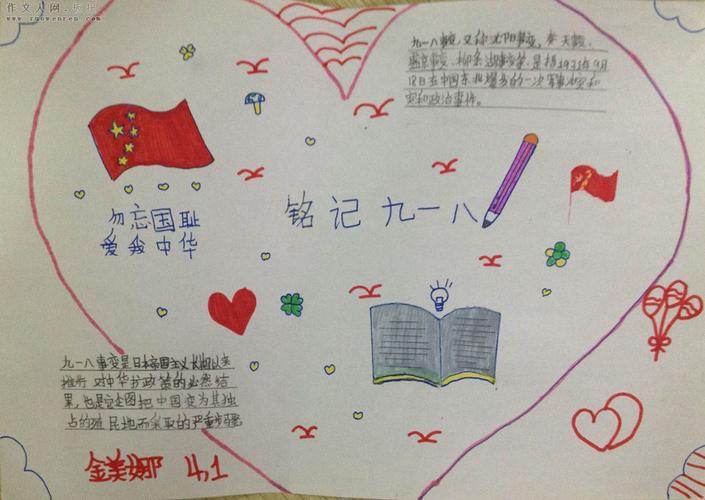 作文人网
www.zuowenren.com
九一八事变,又称沈阳事变、奉天事变、
盛京事变、柳条湖事变等,是指1931年9月
18日在中国东北爆发的一次军事冲突和
突和政治事件。
勿忘国耻
爱我中华
铭记九一八
九一八事变是日本帝国主义长期以来
推行对中华扩政策的必然结
果,也是企图把中国变为其独
占的殖民地而采取的严重步骤
金美娜 4.1